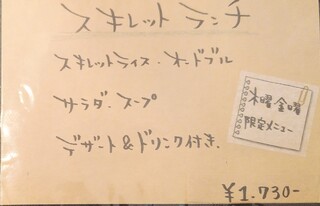 スキレットランチ
スキレットライス・オードブル
サラダ・スープ
デザート&ドリンク付き
木曜金曜
限定メニュー
¥1.730-